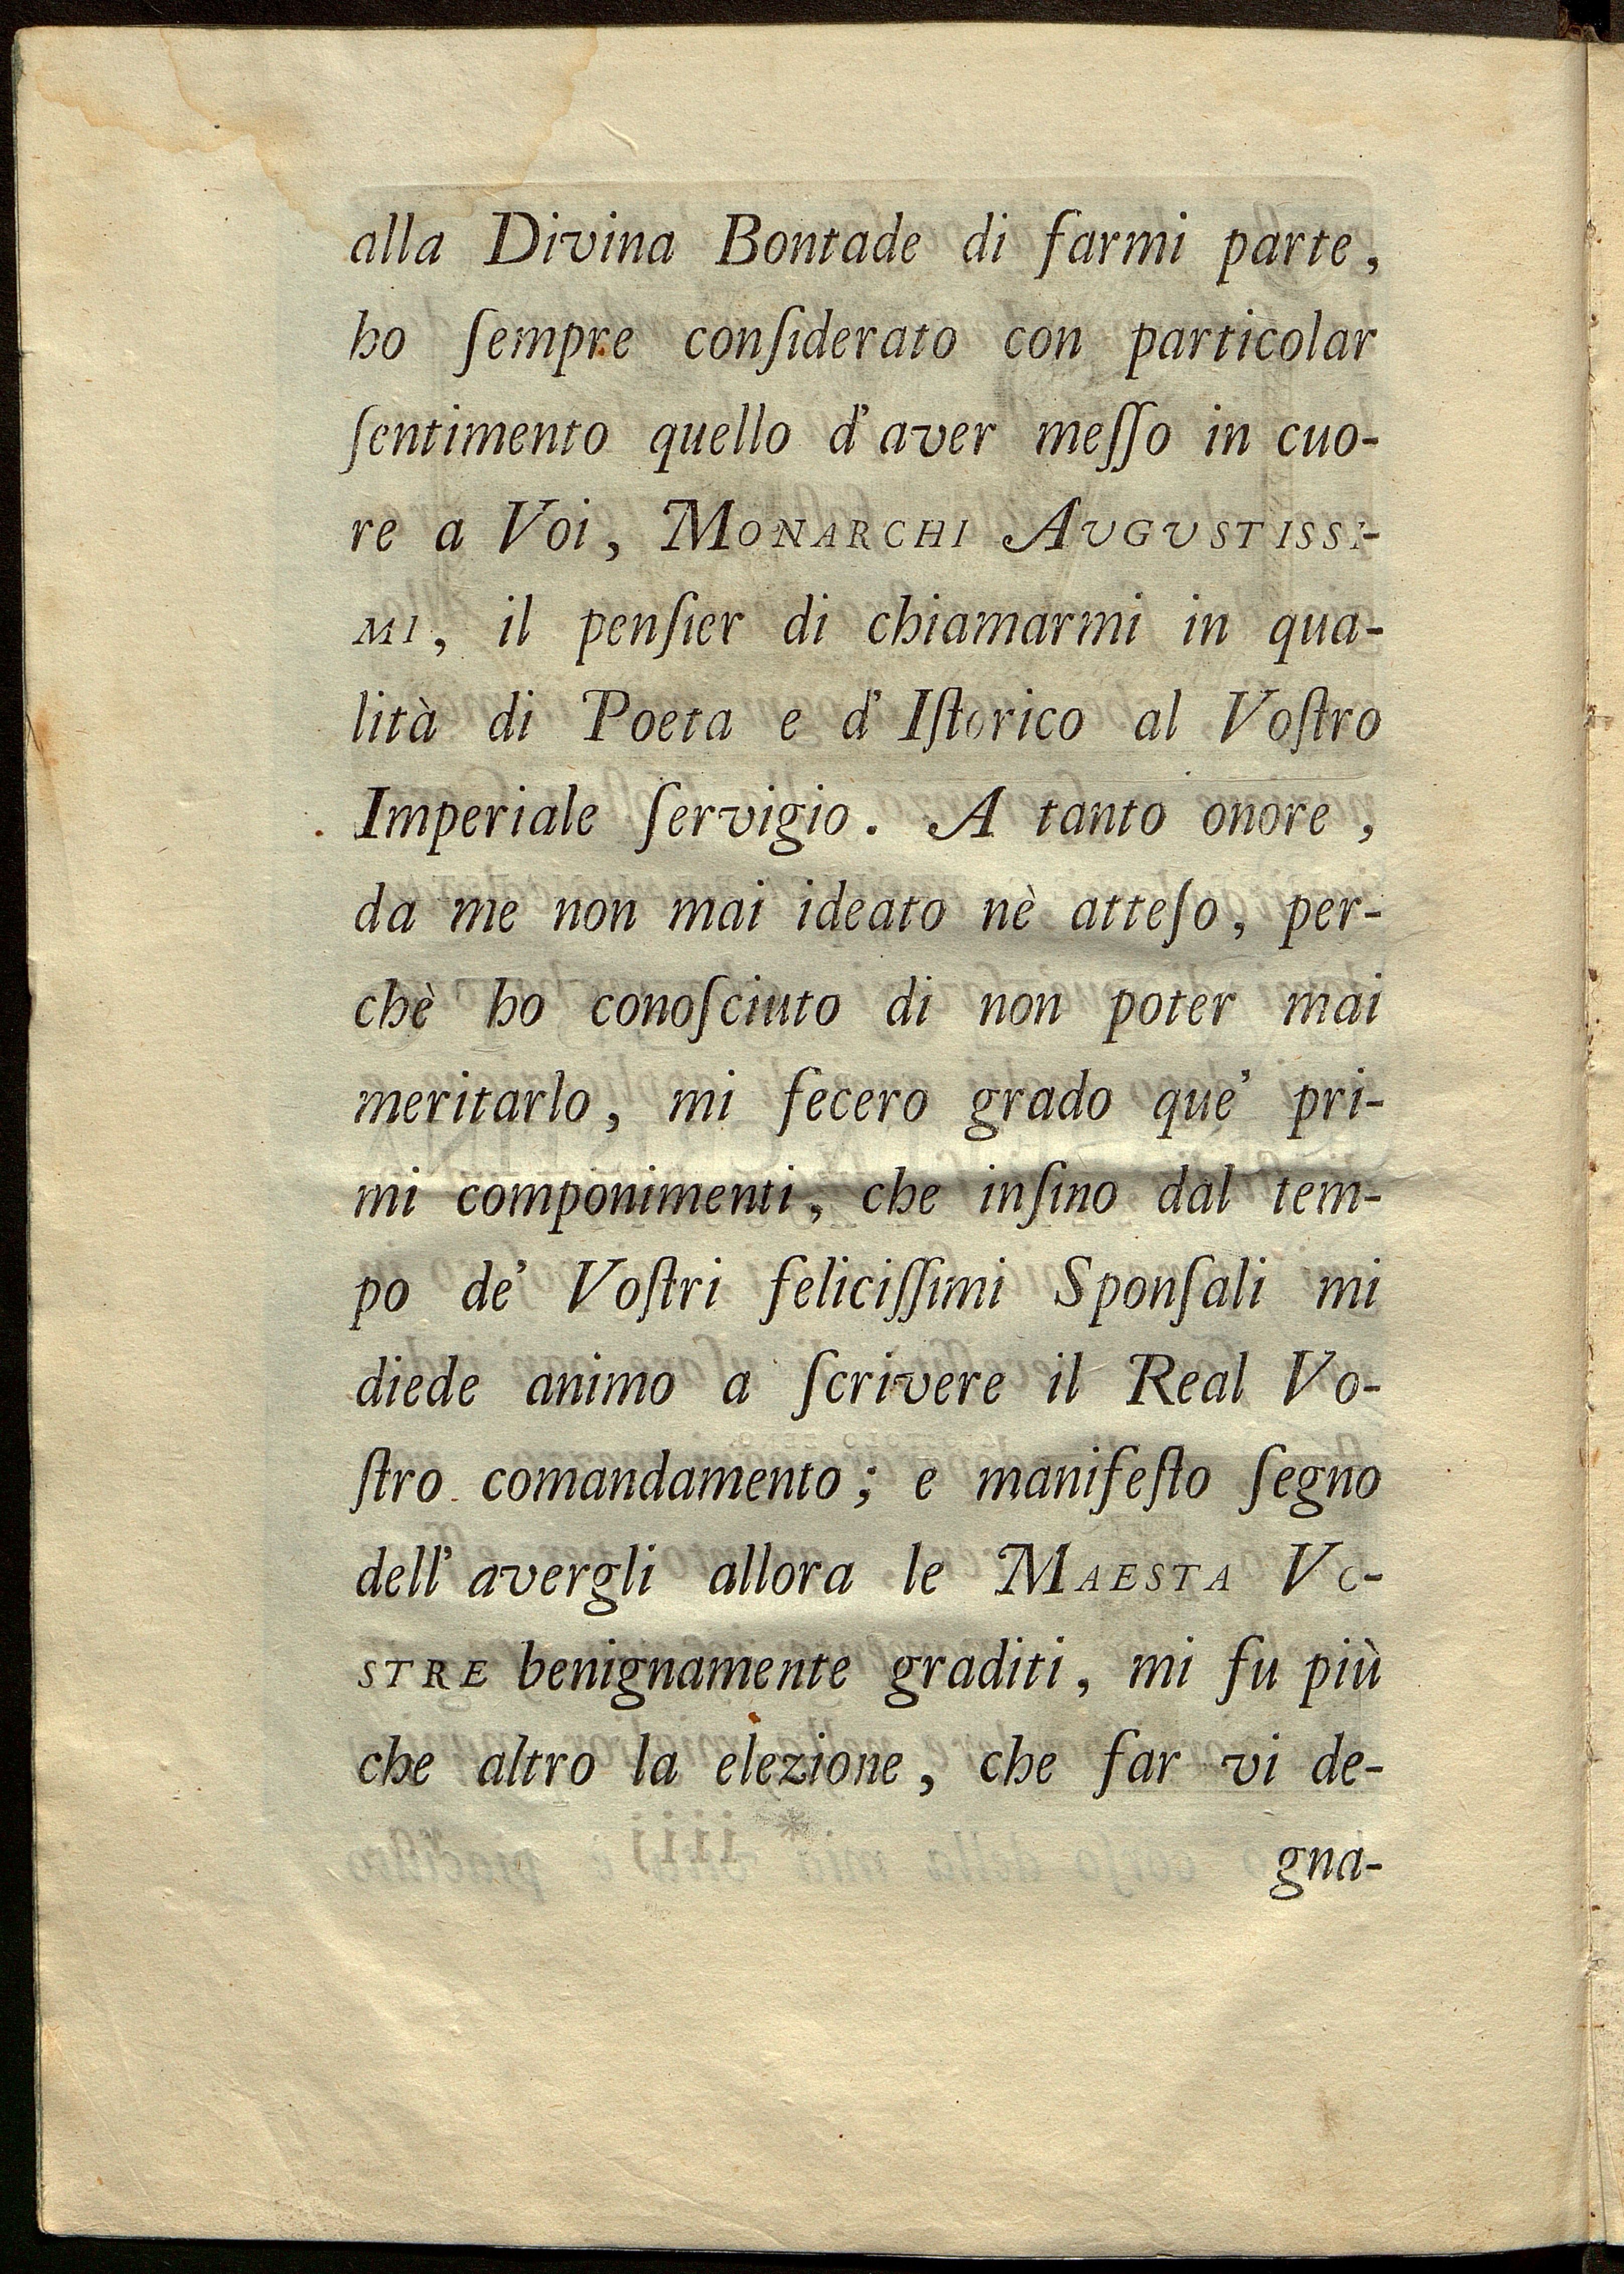 alla Divina Bontade di farmi parte,
ho ſempre conſiderato con particolar
ſentimento quello d'aver meſſo in cuo-
re a Voi, MONARCHI AVGVSTISSI-
MI, il penſier di chiamarmi in qua-
lità di Poeta e d'Iſtorico al Voſtro
Imperiale ſervigio. A tanto onore,
da me non mai ideato nè atteſo, per-
chè ho conoſciuto di non poter mai
meritarlo, mi fecero grado que' pri-
mi componimenti, che inſino dal tem-
po de' Voſtri feliciſſimi Sponſali mi
diede animo a ſcrivere il Real Vo-
ſtro comandamento; e manifeſto ſegno
dell' avergli allora le MAESTA VO-
STRE benignamente graditi, mi fu più
che altro la elezione, che far vi de-
gna-